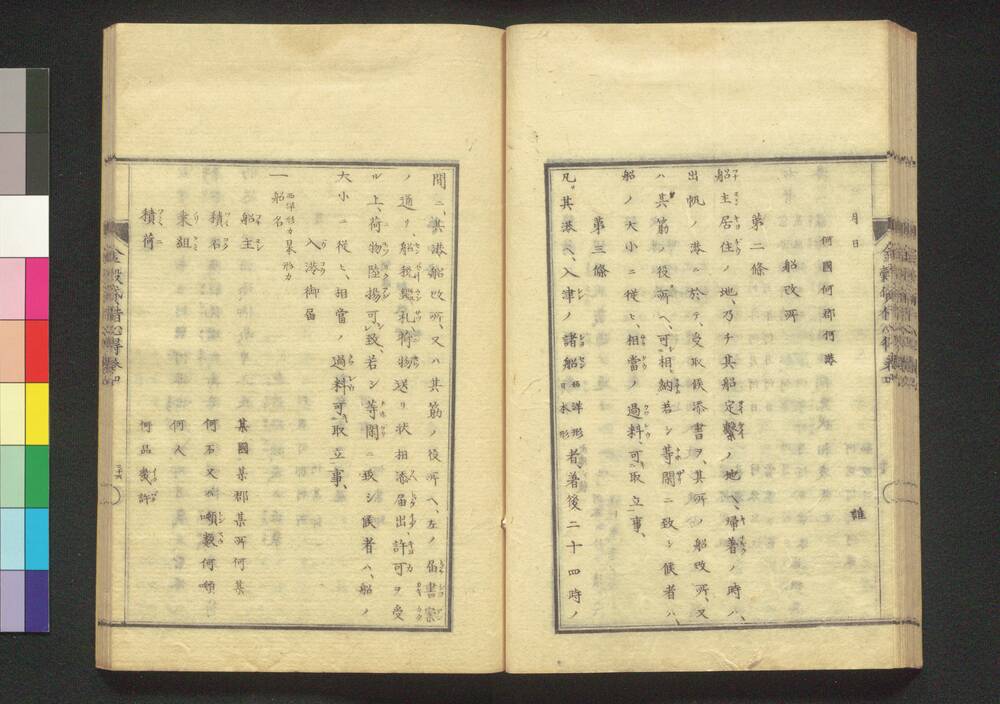 月日
何國何郡何港
誰
船改所
第二條
船主居住ノ地、乃チ其船定繋ノ地ヘ、歸着ノ時ハ、
出帆ノ港ニ於テ、受取候添書ヲ、其所ノ船改所、又
ハ其筋ノ役所ヘ、可相納若シ等閑ニ致シ候者ハ、
船ノ大小ニ從ヒ、相當ノ過料、可取立事、
第三條
凡。其港ヘ、入津ノ諸船西洋形日本形者、着後二十四時ノ
間ニ、其港船改所、又ハ其筋ノ役所ヘ、左ノ届書案
ノ通リ、船税鑑札荷物送リ状相添届出、許可ヲ受
ル上、荷物陸揚可致、若シ等閑ニ致シ候者ハ、船ノ
大小ニ從ヒ、相當ノ過料可取立事、
入港御届
一船名西洋形カ日本形カ
船主 某國某郡某所何某
積石 何石又ハ噸數何噸
乘組 何人
積荷 何品幾許